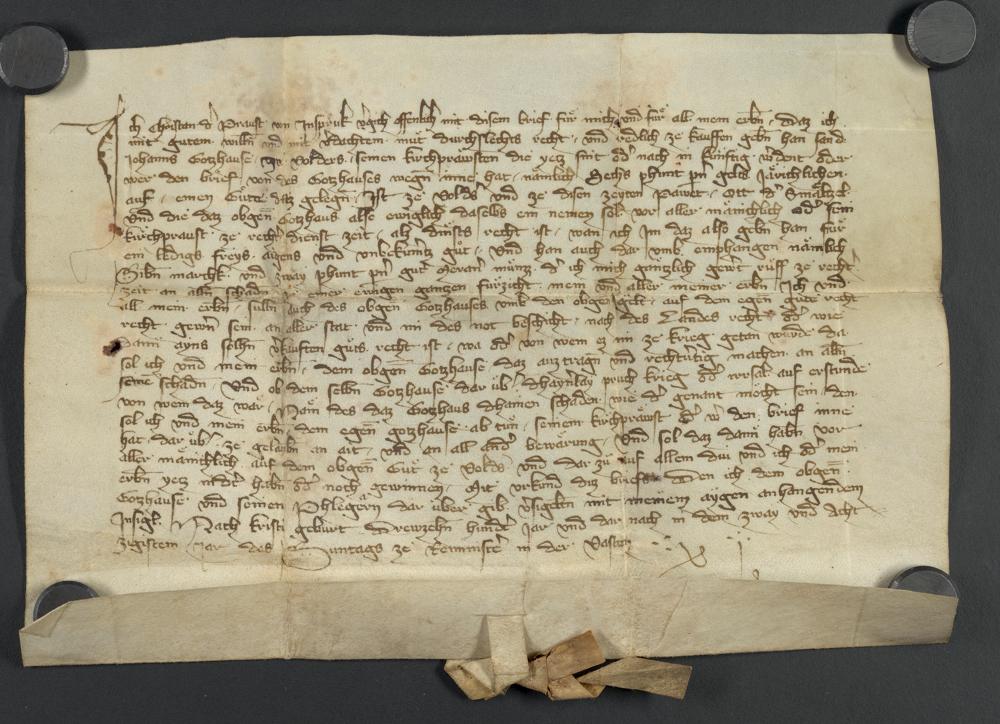 Ich Christan d' Praust von Inspruk v'gich offenlich mit disem brief für mich und für all mein erbn daz ich
mit gutem willn und mit v'dachtem mut durchslechts recht und redlich ze kauffen gebn han sand
Johanns Gotzhause ze Volders seinen kirchprawsten die yetz sint od' nach in künftig w'dent oder
wer den brief von des Gotzhauses wegn inne hat nämlich Sechs phunt pn' gelts järichlichen
auf einen Gute daz gelegn ist ze Volds' und ze disen zeyten pawet Ott d' Smältzel
und die daz obgen' Gotzhaus also ewiglich daselbs ein nemen sol vor aller mänichlich od' sein
kirchpraust ze recht' dienst zeit als dinsts recht ist wan ich im daz also gebn han für
ein ledigs freys aygens und unbekümtz gut und han auch dar umb emphangen nämlich
Sibn march und zway phunt pn' gut' Meran' münz d' ich mich gantzlich gewert rüff ze recht'
zeit an alln schadn ze einer ewigen ganzen fürzicht mein und aller meiner erbn Ich und
all mein erbn sulln auch des obgen' Gotzhauses umb den obgen' gelt auf dem egen' gute recht
recht gewern sein an aller stat und im des not beschicht nach des Landes recht od' wie
dann ayns solhn v'kauften guts recht ist wa od' von wem ez im ze krieg getan wurde da
sol ich und mein erbn dem obgen' Gotzhause daz auztragn und rechtvertig machen an alln
seine schadn Und ob dem selbn Gotzhause dar üb' dhaynerlay pruch krieg od' irrsal auf erstunde
von wem daz wär Näm des daz Gotzhaus dhainen schaden wie d' genant möcht sein den
sol ich und mein erbn dem egen' gotzhause ab tun seinem kirchprawst od' w' den brief inne
hat dar üb' ze gelaubn an ait und an all and' bewärung Und sol daz dann habn vor
aller mänichlich auf dem obgen' Gut ze Volds' und dar zu auf allem dem und ich od' mein
erbn yetz ind't habn od' noch gewinnen Mit urkund diz briefs Den ich dem obgen'
Gotzhause und seinen Phlegern dar über gib v'sigelten mit meinem aygen anhangendem
Insigl Nach Kristi geburt Drewzehn hund't Jar und dar nach in dem zway und Acht
zigistem Jar des Suntags ze Reminiscere in der Vasten